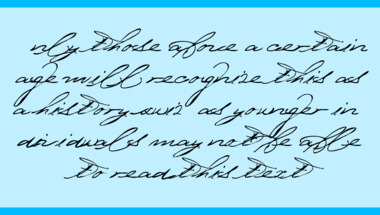 nly those afove a certain
age will recognize this as
a history quiz as younger in
dividuals may not be afle
to read this text